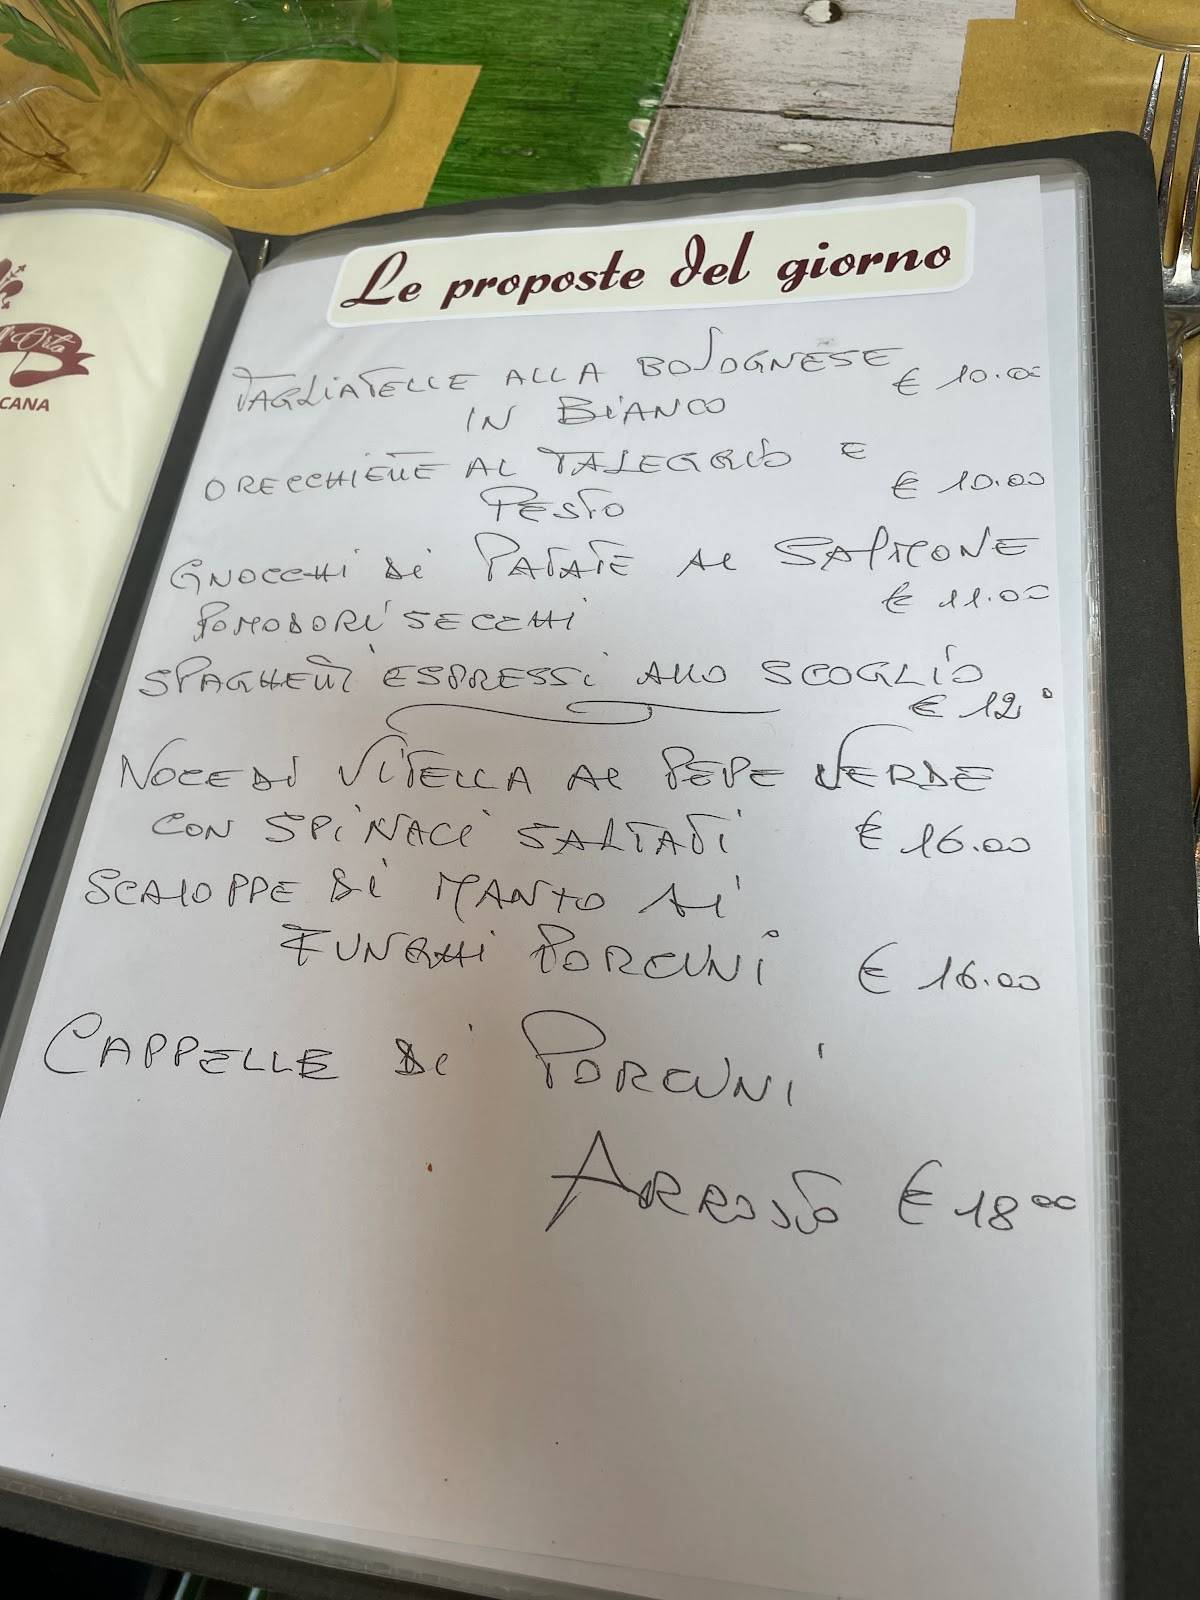 Orto
CANA
Le proposte del giorno
TAGLIATELLE ALLA BOLOGNESE
IN BIANCO € 10.00
ORECCHIETTE AL TALEGGIO E
PESTO € 10.00
GNOCCHI DI PATATE AL SALMONE
POMODORI SECCHI € 11.00
SPAGHETTI ESPRESSI ALLO SCOGLIO
€ 12°
NOCE DI VITELLA AL PEPE VERDE
CON SPINACI SALTATI € 16.00
SCALOPPE DI MANZO AI
FUNGHI PORCINI € 16.00
CAPPELLE DI PORCINI
ARROSTO € 18 00